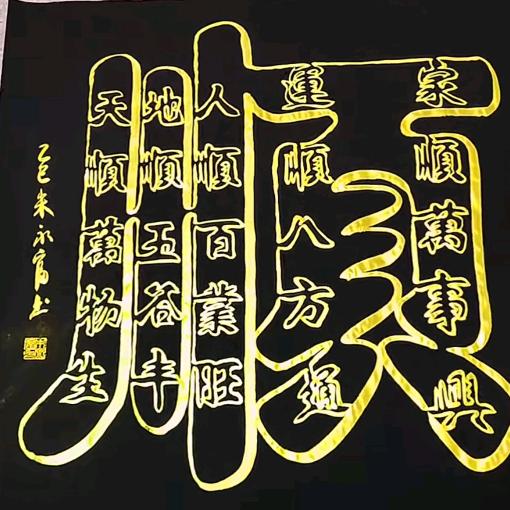 順
天順萬物生
地順五谷丰
人順百業旺
運順八方通
家順萬事興
乙巳朱永富书